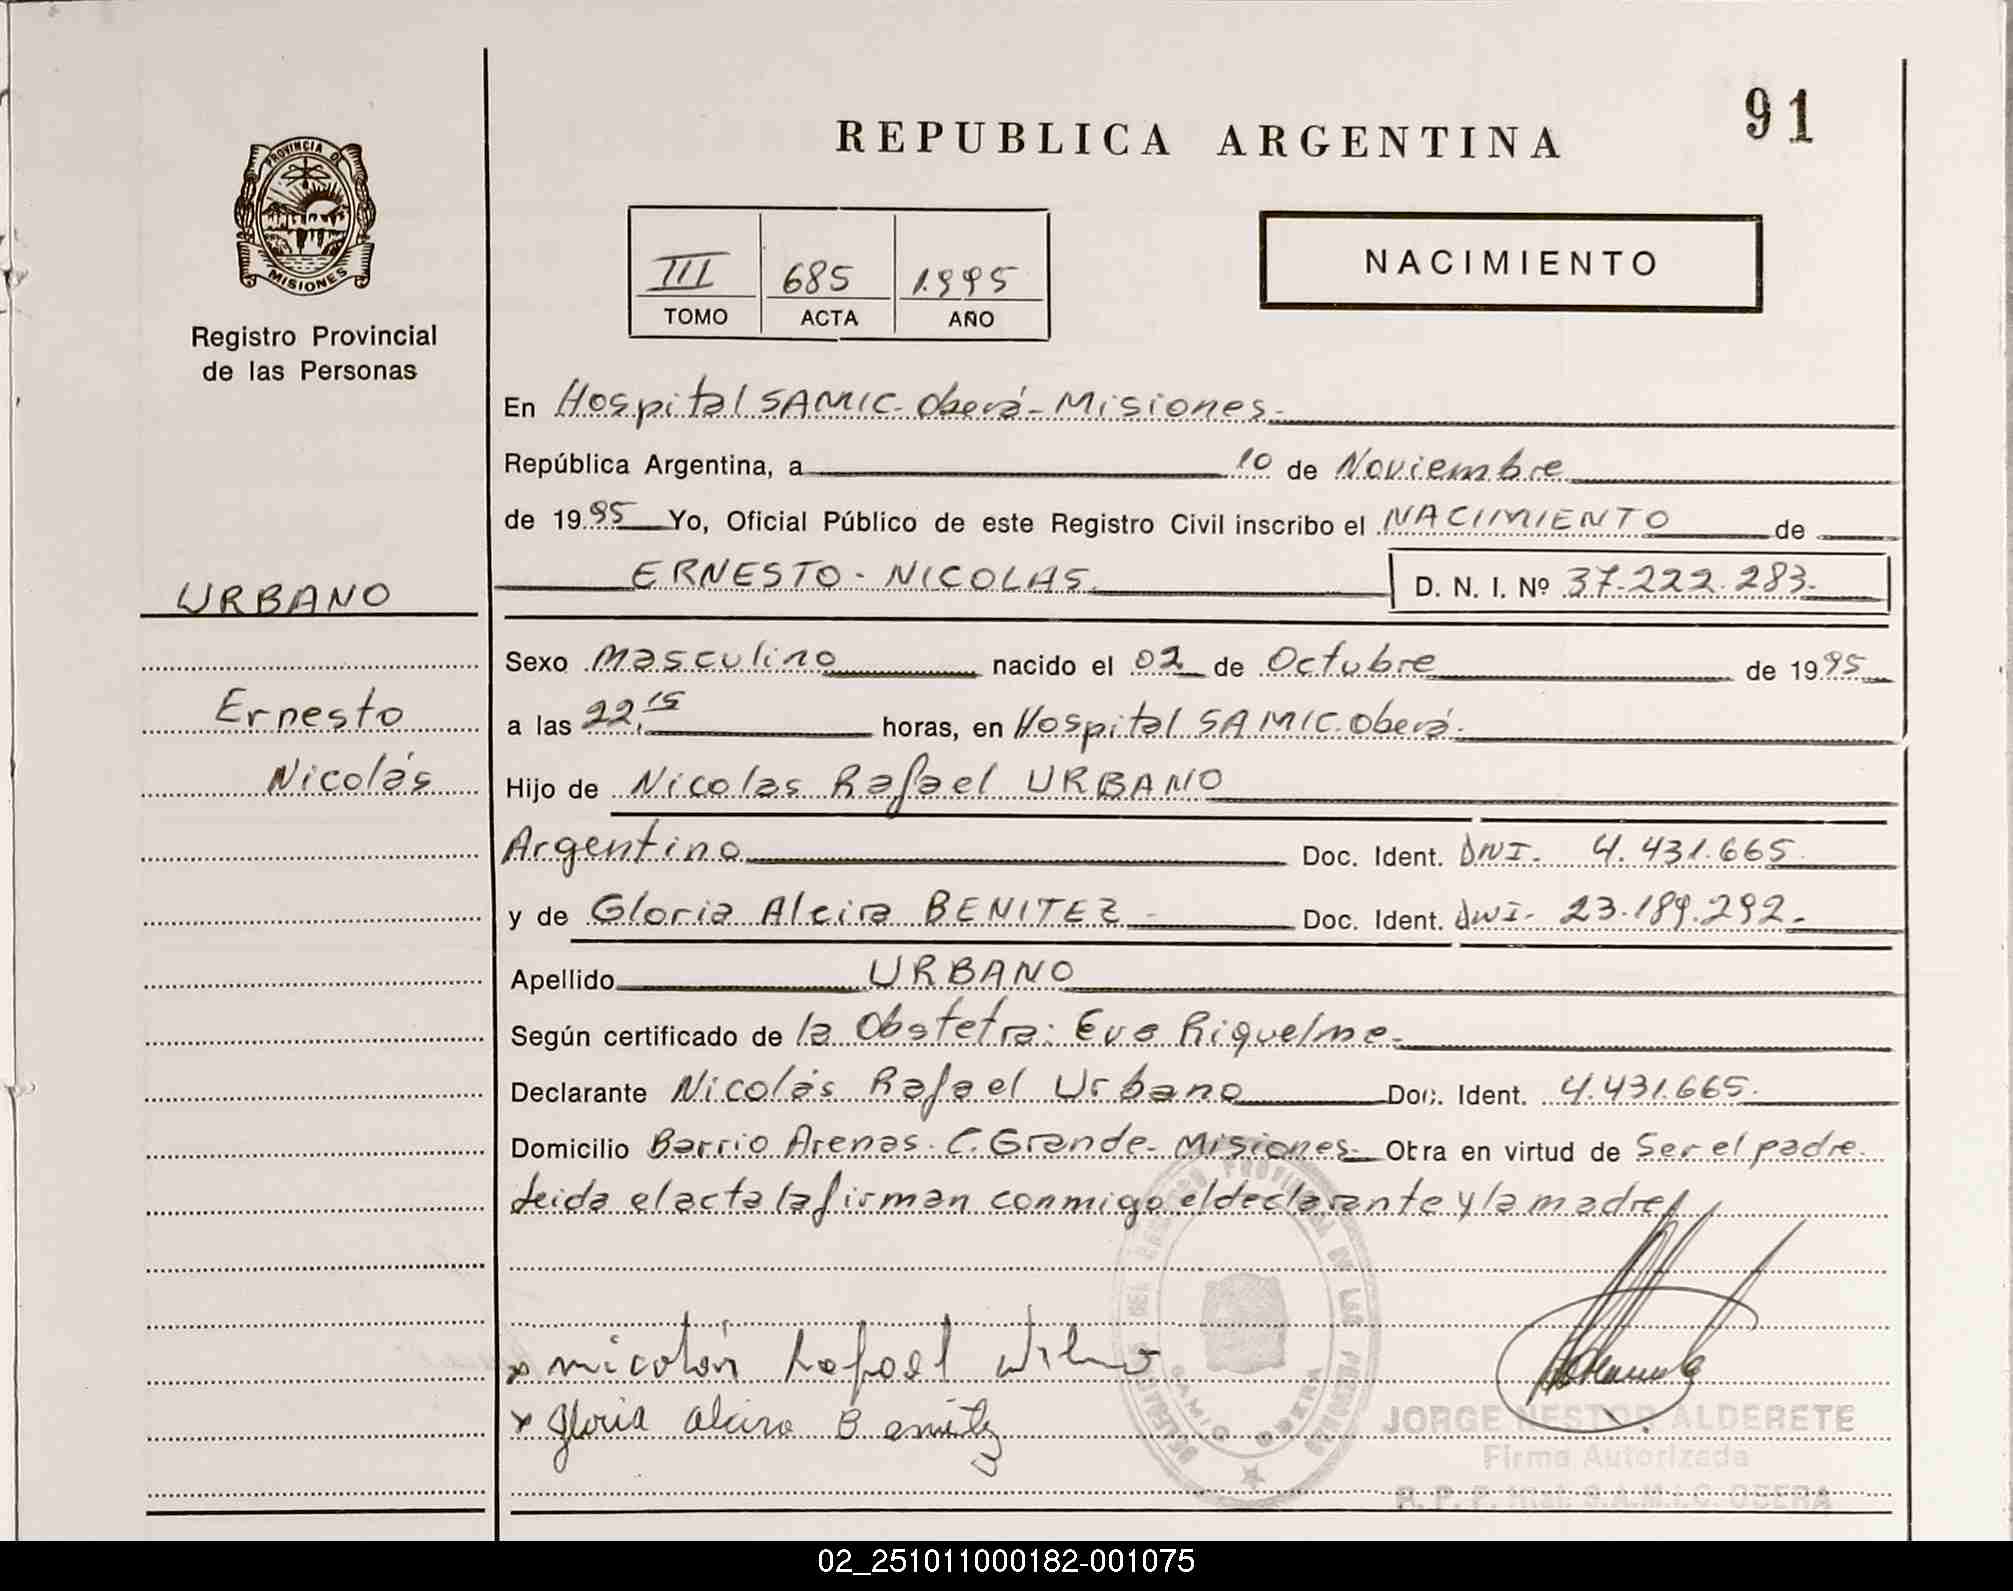 91
REPUBLICA ARGENTINA
PROVINCIA DE
MISIONES
III 685 1.995
TOMO ACTA AÑO
NACIMIENTO
Registro Provincial
de las Personas
En Hospital SAMIC-Oberá-Misiones-
República Argentina, a 10 de Noviembre
de 1995 Yo, Oficial Público de este Registro Civil inscribo el NACIMIENTO de
URBANO
ERNESTO-NICOLAS. D. N. I. Nº 37.222.283-
Sexo Masculino nacido el 02 de Octubre de 1995
Ernesto
a las 22,15 horas, en Hospital SAMIC. Oberá.
Nicolás
Hijo de Nicolas Rafael URBANO
Argentino Doc. Ident. DNI. 4.431.665
y de Gloria Alcira BENITEZ - Doc. Ident. DNI- 23.189.292.-
Apellido URBANO
Según certificado de la Obstetra: Eva Riquelme-
Declarante Nicolás Rafael Urbano Doc. Ident. 4.431.665.
Domicilio Barrio Arenas. C. Grande- Misiones- Obra en virtud de Ser el padre.
Leida el acta la firman conmigo el declarante y la madre
x nicolás Rafael
x Gloria alcira Benitez
JORGE NESTOR ALDERETE
Firma Autorizada
R. P. P. Inst. S.A.M.I.C. OBERA
02_251011000182-001075